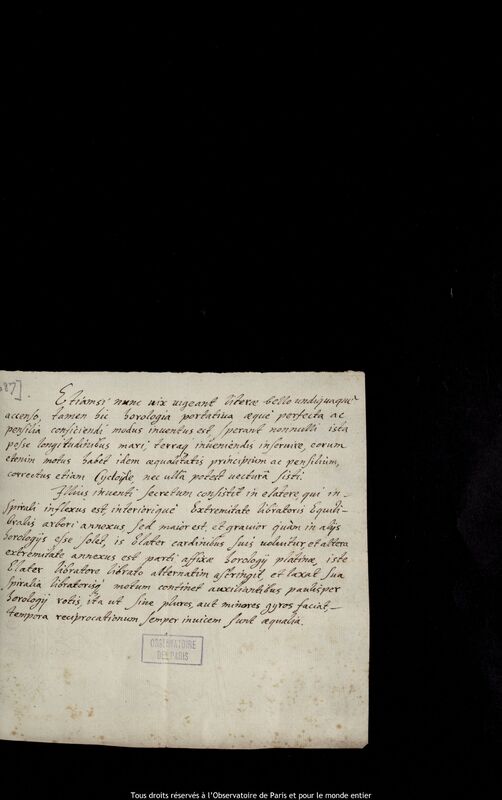 687].
Etiamsi nunc vix vigeant literæ bello undiquaque
accenso, tamen hic horologia portativa æque perfecta ac
pensilia conficiendi modus inventus est, sperant nonnulli ista
posse longitudinibus mari, terraq inveniendis inservire, eorum
etenim motus habet idem æqualitatis principium ac pensilium,
correctus etiam Cycloide, nec ulla potest vectura sisti.
Illius inventi secretum consistit in elatere, qui in
spirali inflexus est, interiorique extremitate libratoris Equili-
bralis arbori annexus, sed maior est, et gravior quàm in alijs
horologijs esse solet, is Elater cardinibus suis volvitur, et altera
extremitate annexus est parti affixæ horologij platinæ, iste
Elater libratore librato alternatim astringit, et laxat sua
spiralia libratorisq motum continet auxiliantibus paulisper
horologij rotis, ita ut sine plures, aut minores gyros faciat,
tempora reciprocationum semper invicem sunt æqualia.
OBSERVATOIRE
DE PARIS
Tous droits réservés à l'Observatoire de Paris et pour le monde entier